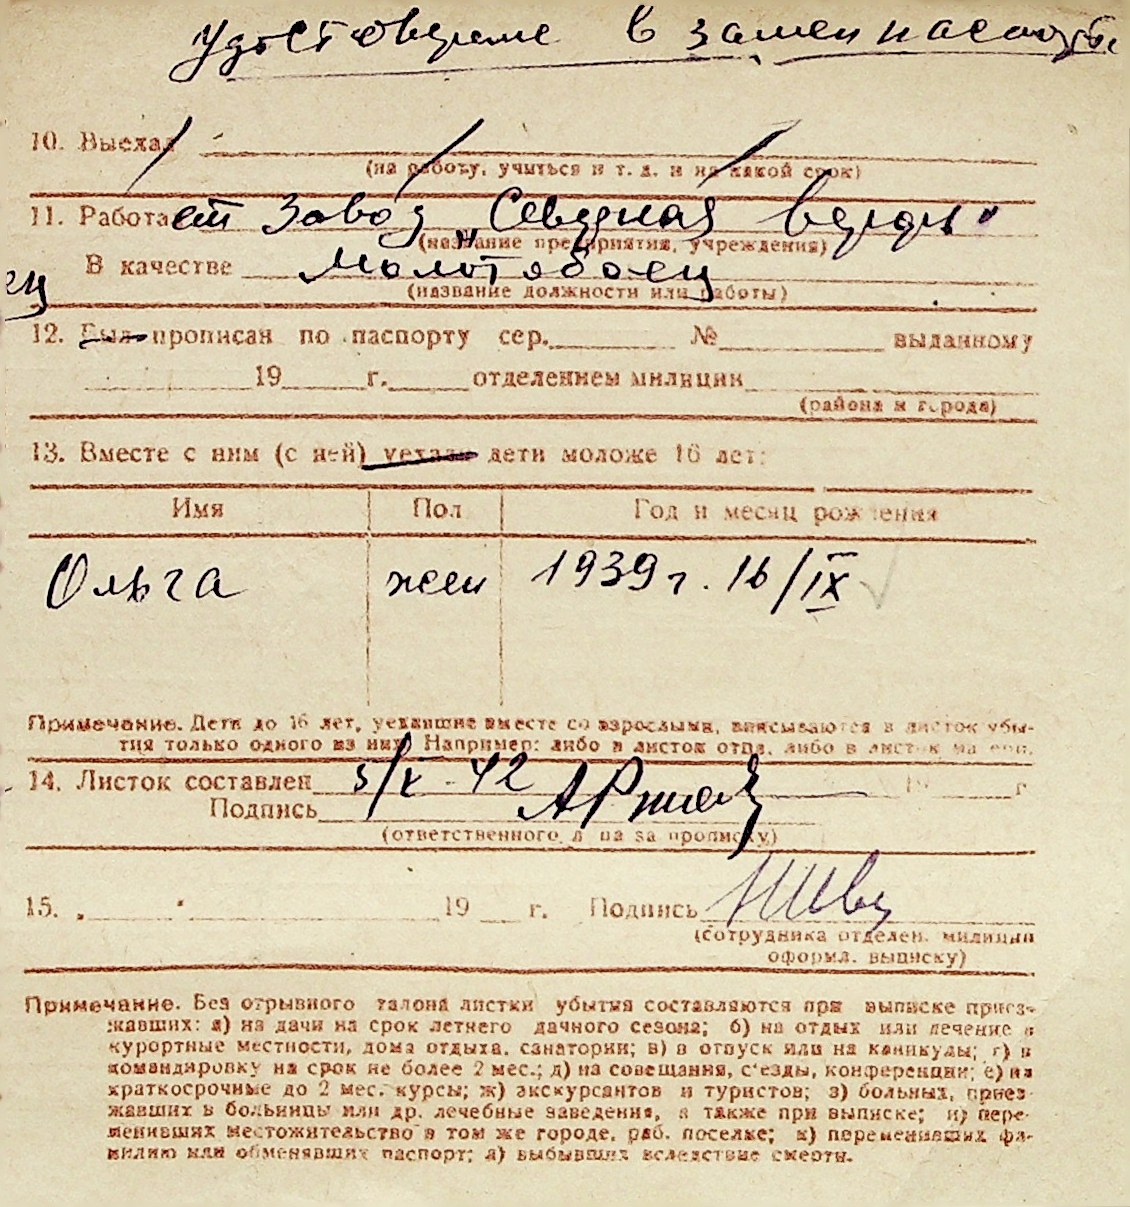 Удостоверение в замен паспорта
10. Выехал
(на работу, учиться и т. д. и на какой срок)
11. Работает Завод „Северная верфь"
(название предприятия, учреждения)
В качестве Молотобоец
(название должности или работы)
12. Был прописан по паспорту сер. № выданному
19 г. отделением милиции
(района и города)
13. Вместе с ним (с ней) уехали дети моложе 16 лет:
Имя Пол Год и месяц рождения
Ольга жен 1939 г. 16/IX
Примечание. Дети до 16 лет, уехавшие вместе со взрослыми, вписываются в листок убы-
тия только одного из них. Например: либо в листок отца, либо в листок матери.
14. Листок составлен 5/X-42 19 г
Подпись
(ответственного лица за прописку)
15. „ " 19 г. Подпись
(сотрудника отделен. милиции
оформл. выписку)
Примечание. Без отрывного талона листки убытия составляются при выписке приез-
жавших: а) на дачи на срок летнего дачного сезона; б) на отдых или лечение в
курортные местности, дома отдыха, санатории; в) в отпуск или на каникулы; г) в
командировку на срок не более 2 мес.; д) на совещания, с'езды, конференции; е) на
краткосрочные до 2 мес. курсы; ж) экскурсантов и туристов; з) больных, приез-
жавших в больницы или др. лечебные заведения, а также при выписке; и) пере-
менивших местожительство в том же городе, раб. поселке; к) переменивших фа-
милию или обменявших паспорт; л) выбывших вследствие смерти.